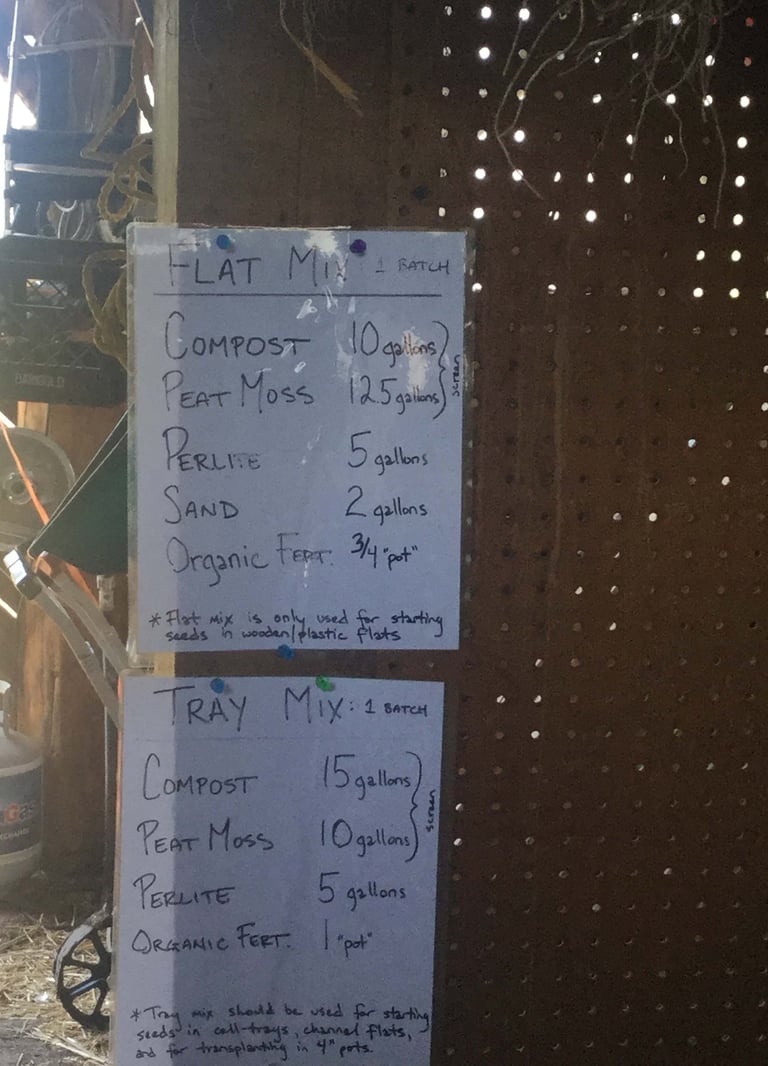 FLAT MIX 1 BATCH
COMPOST 10 gallons
PEAT MOSS 12.5 gallons
screen
PERLITE 5 gallons
SAND 2 gallons
Organic FERT. 3/4 "pot"
* Flat mix is only used for starting
seeds in wooden/plastic flats
TRAY MIX: 1 BATCH
COMPOST 15 gallons
PEAT MOSS 10 gallons
screen
PERLITE 5 gallons
ORGANIC FERT. 1 "pot"
* Tray mix should be used for starting
seeds in cell-trays, channel flats,
and for transplanting in 4" pots.